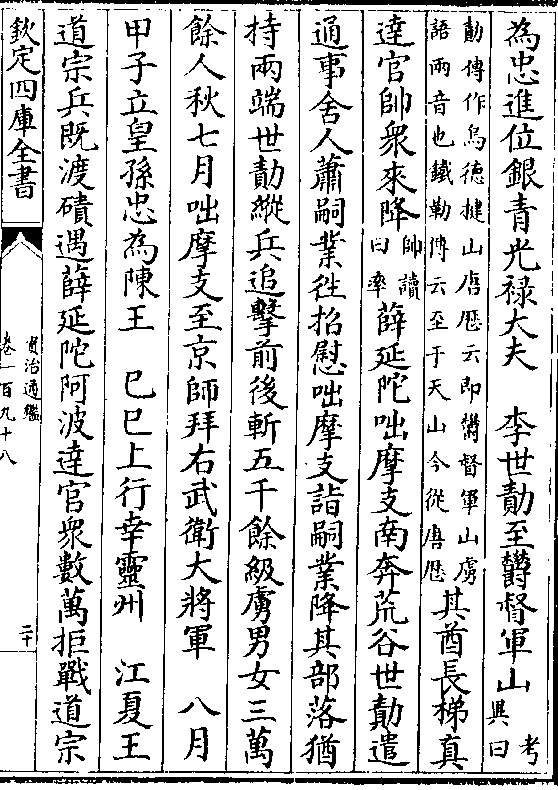 為忠進位銀青光祿大夫　李世勣至鬱督軍山考異曰
勣傳作烏德揵山唐歷云即鬱督軍山虜
語兩音也鐵勒傳云至于天山今從唐歷其酋長梯真
達官帥衆來降帥讀曰率薛延陀咄摩支南奔荒谷世勣遣
通事舍人蕭嗣業往招慰咄摩支詣嗣業降其部落猶
持兩端世勣縱兵追擊前後斬五千餘級虜男女三萬
餘人秋七月咄摩支至京師拜右武衛大將軍　八月
甲子立皇孫忠為陳王　己巳上行幸靈州　江夏王
道宗兵既渡磧遇薛延陀阿波達官衆數萬拒戰道宗
欽定四庫全書
資治通鑑
卷一百九十八
二十